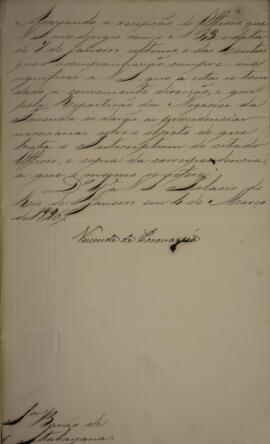 Accusando a recepção do Officio que
V. S. me dirigio com o Nº 43 e data
de 7 de Janeiro ultimo, e das Contas
que o acompanharão, cumpre-me
significar a V. S. que a estas se tem
dado a conveniente direcção, e que
pela Repartição dos Negocios da
Fazenda se darão as providencias
necessarias sobre o objecto de que
trata o Postscriptum do citado
Officio, e copia da correspondencia
a que o mesmo se refere.
Palacio do
Rio de Janeiro em de Março
de
Visconde de Caravaguá
Snr Barão de
Itabayana